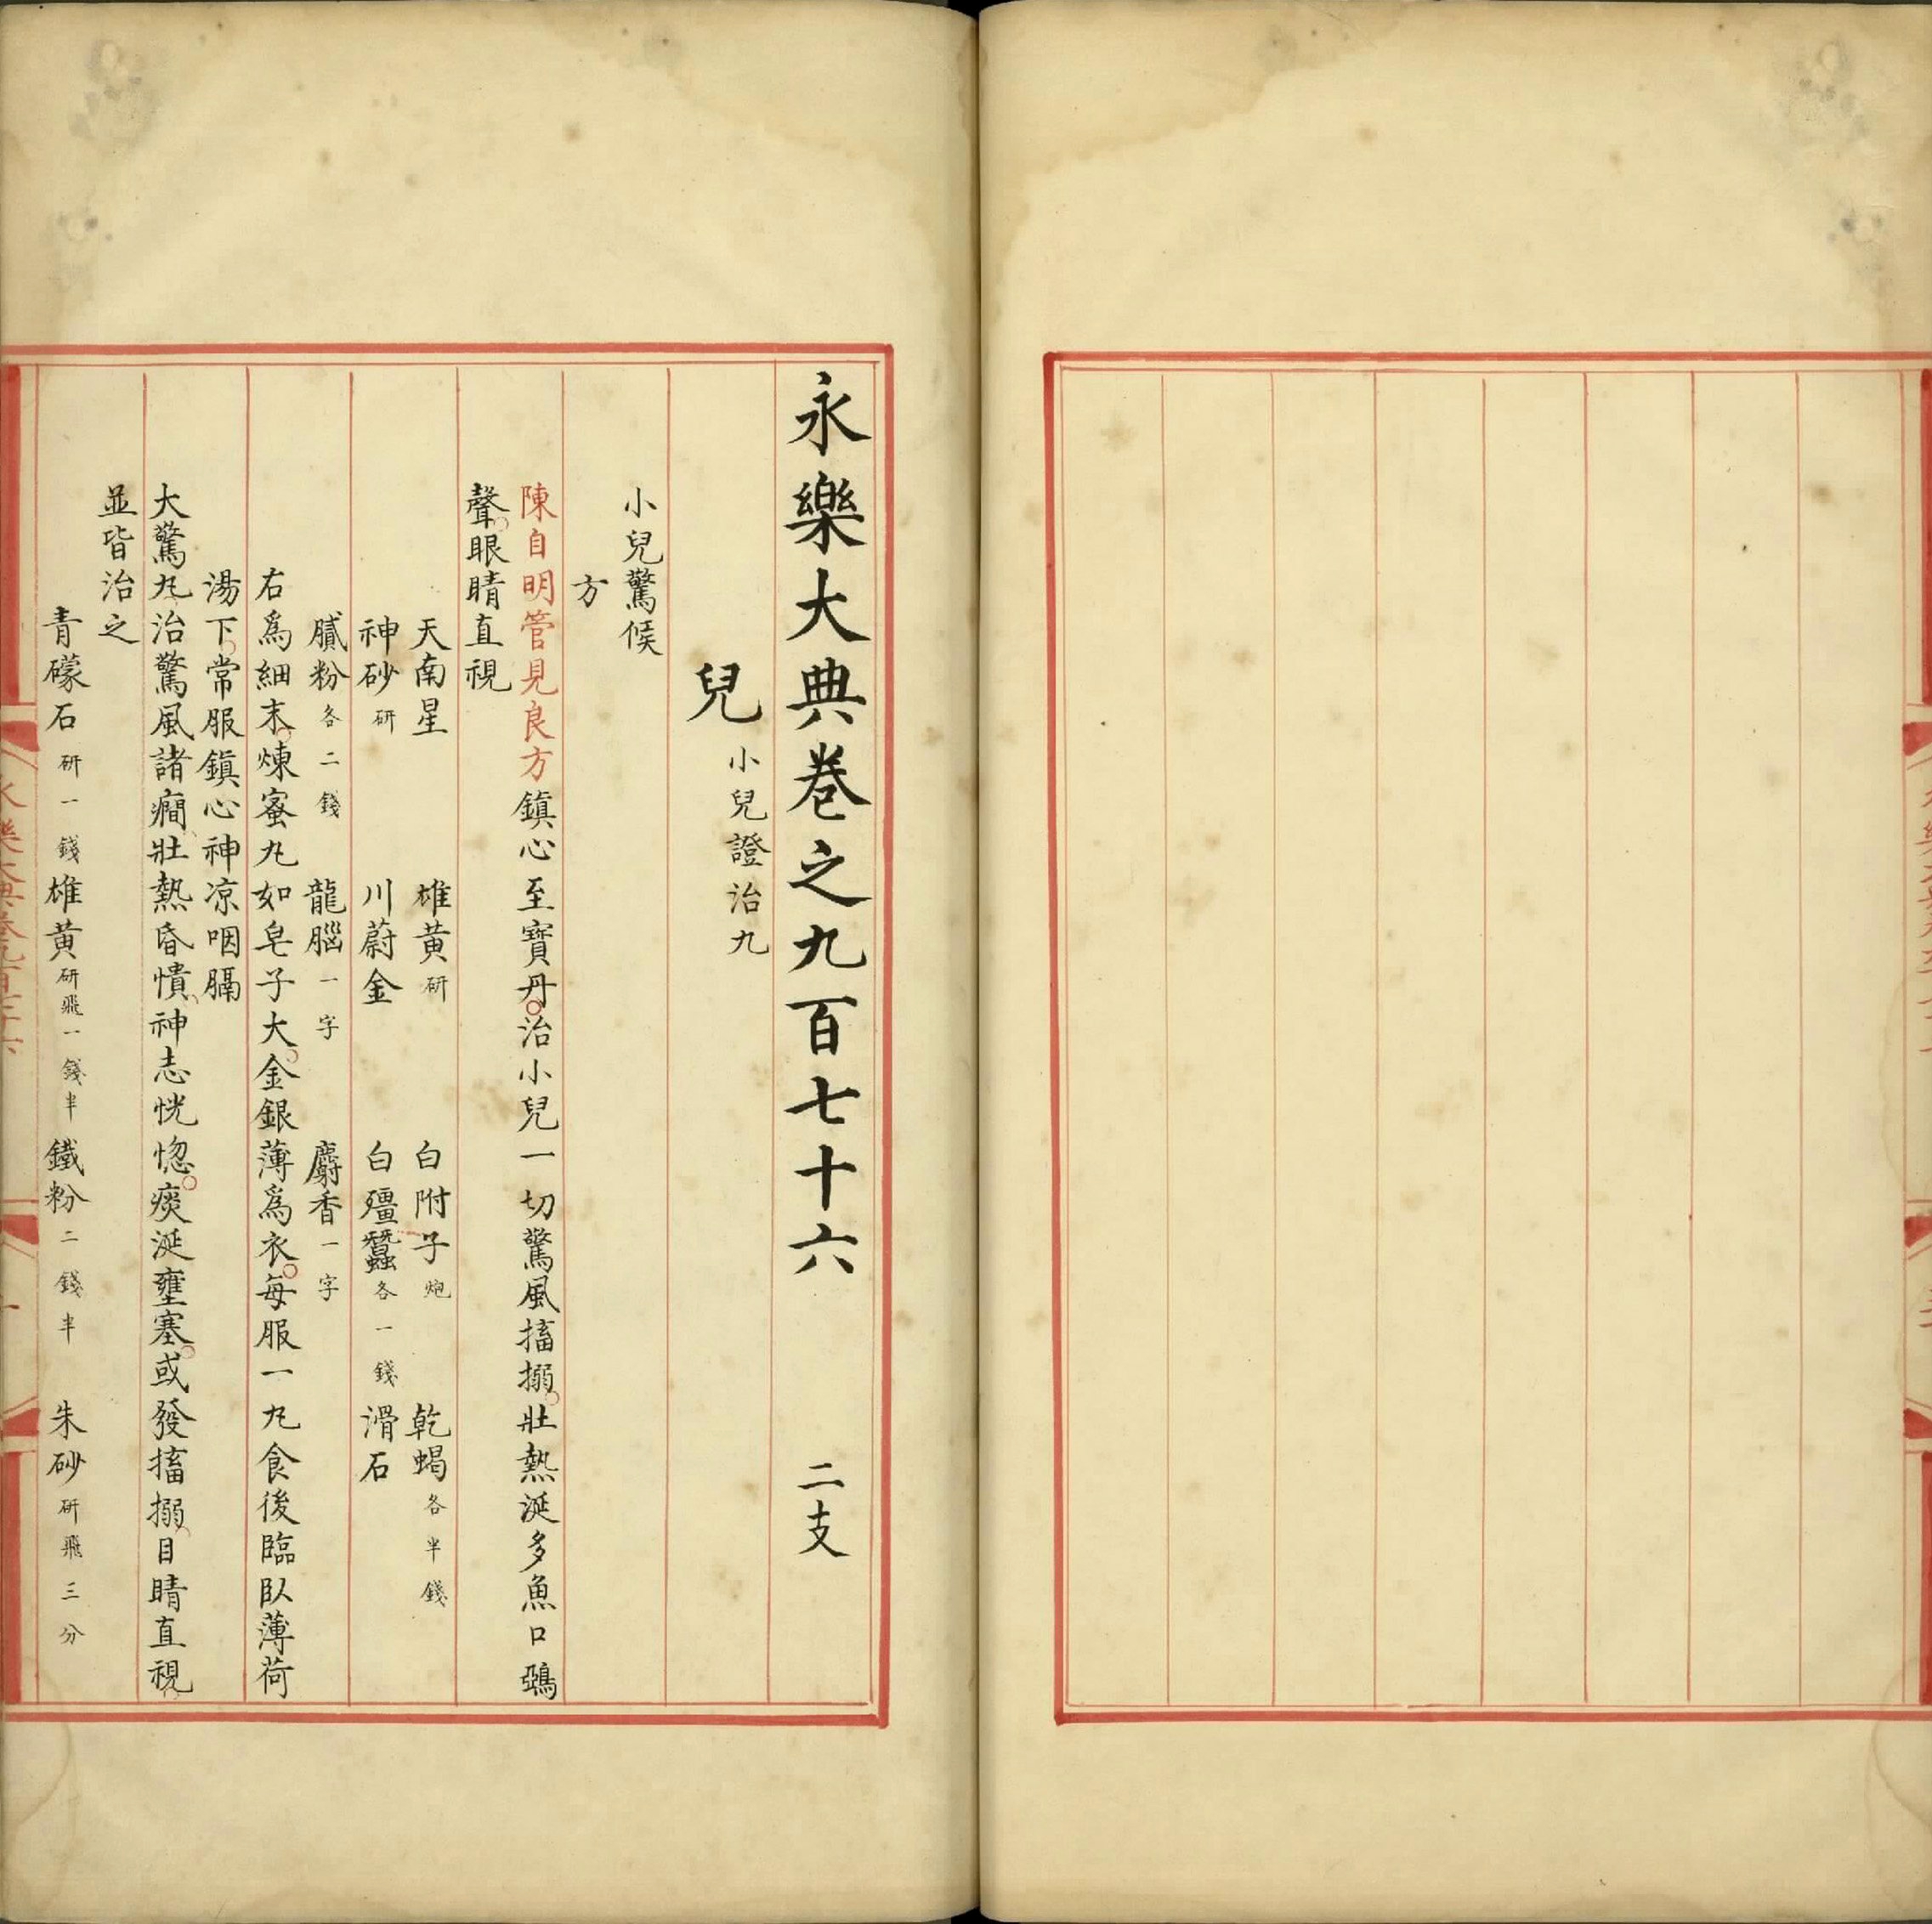 永樂大典卷之九百七十六 二支
兒 小兒證治九
小兒驚候
方
陳自明管見良方鎮心至寶丹治小兒一切驚風搐搦壯熱涎多魚口鵶
聲眼睛直視
天南星 雄黃研 白附子炮 乾蝎各半錢
神砂研 川蔚金 白殭蠶各一錢 滑石
膩粉各二錢 龍腦一字 麝香一字
右爲細末煉蜜丸如皂子大金銀薄爲衣每服一丸食後臨臥薄荷
湯下常服鎮心神凉咽膈
大驚丸治驚風諸癇壯熱昏憒神志恍惚痰涎壅塞或發搐搦目睛直視
並皆治之
青礞石研一錢 雄黃研飛一錢半 鐵粉二錢半 朱砂研飛三分